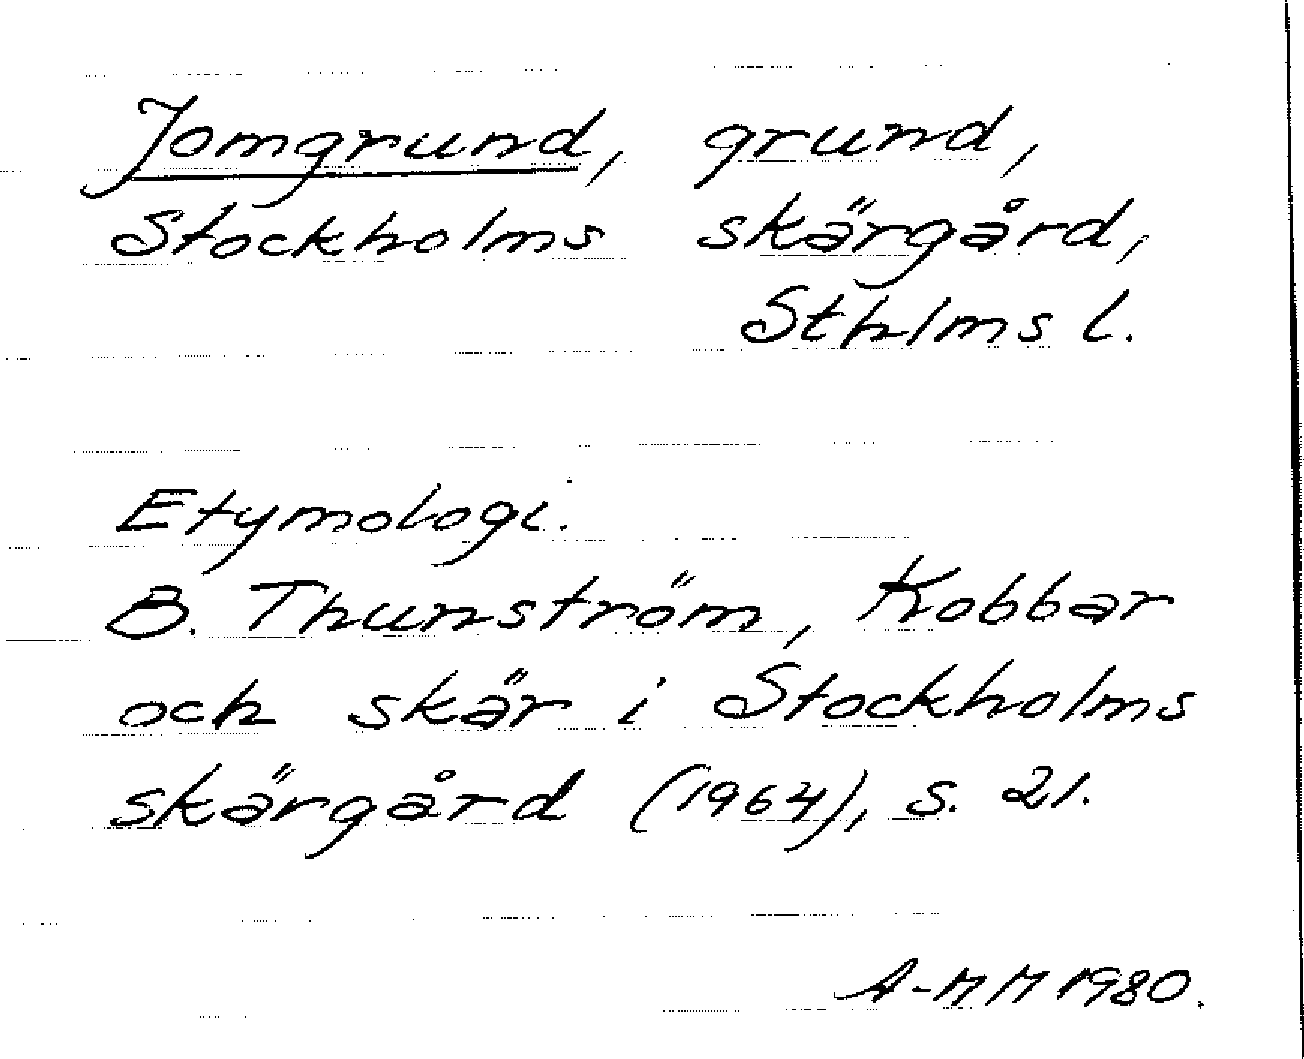 Jomgrund, grund,
Stockholms skärgård,
Sthlms l.
Etymologi.
B. Thunström, Kobbar
och skär i Stockholms
skärgård (1964), s. 21.
A-MM 1980.